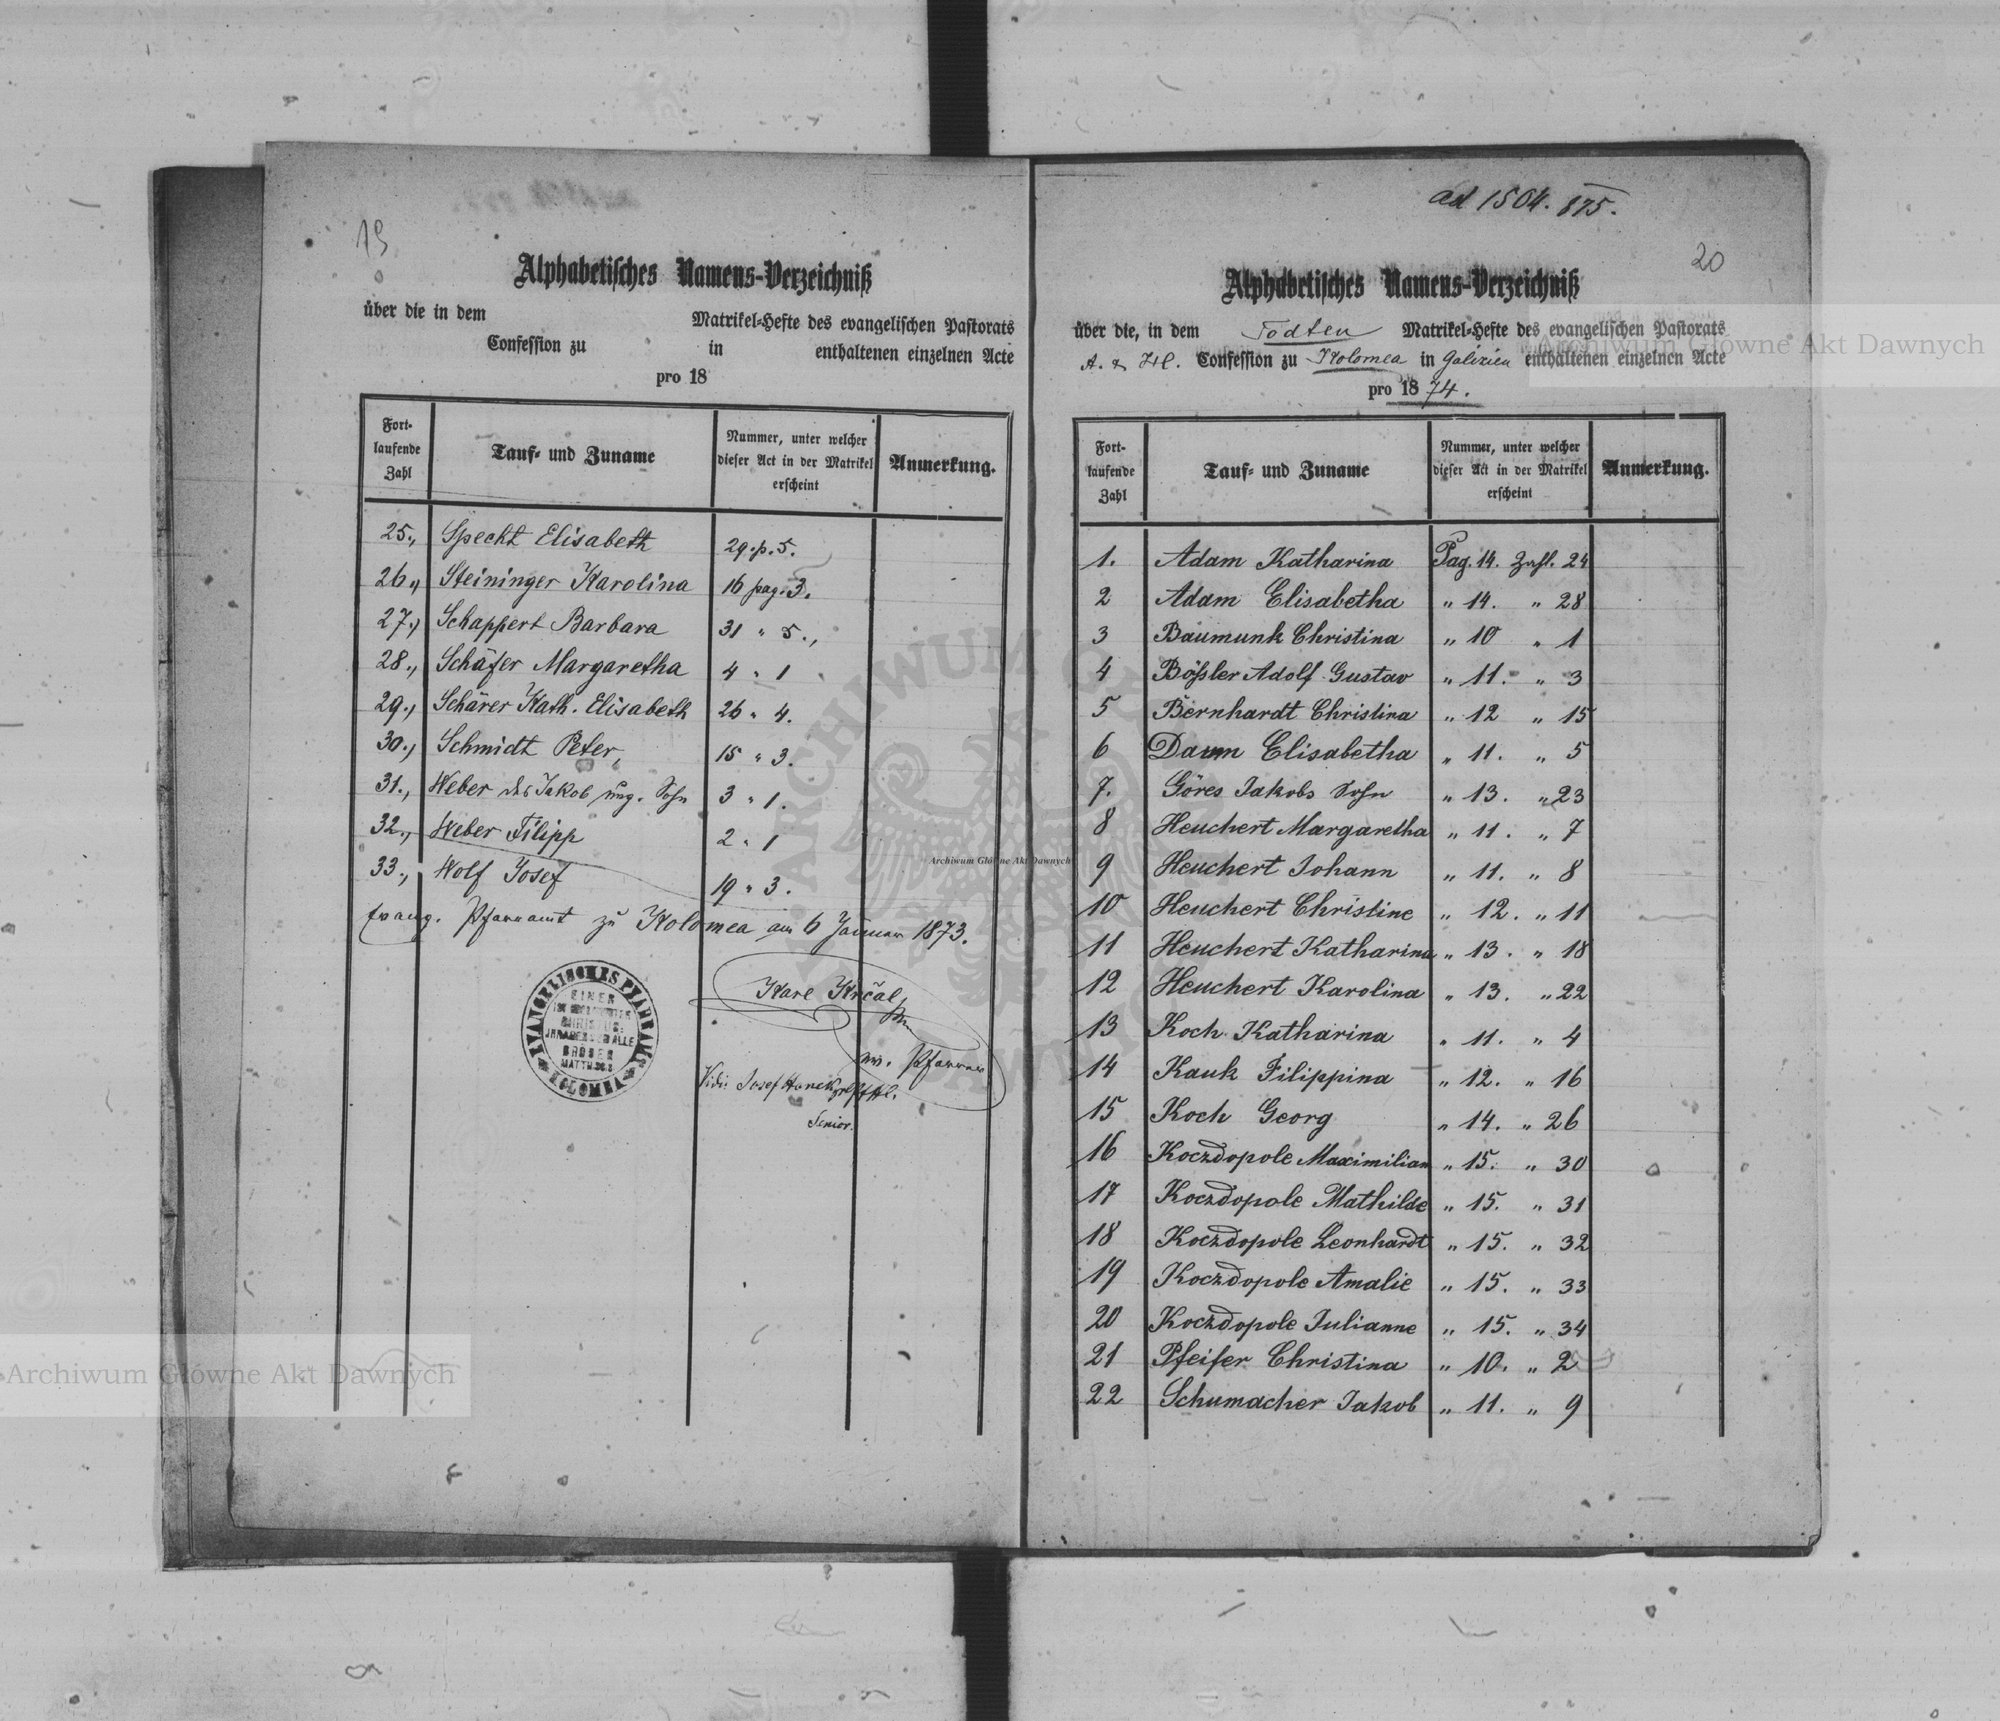 19
Alphabetisches Namens-Verzeichniß
über die in dem Matrikel-Hefte des evangelischen Pastorats
Confession zu in enthaltenen einzelnen Acte
pro 18
Fort-laufende Zahl Tauf- und Zuname Nummer, unter welcher dieser Act in der Matrikel erscheint Anmerkung.
25., Specht Elisabeth 29. p. 5.
26., Steininger Karolina 16 pag. 3.
27., Schappert Barbara 31 " 5.,
28., Schäfer Margaretha 4 " 1
29., Schärer Kath. Elisabeth 26 " 4.
30., Schmidt Peter, 15 " 3.
31., Weber des Jakob ung. Sohn 3 " 1.
32., Weber Filipp 2 " 1
33., Wolf Josef 19 " 3.
Evang. Pfarramt zu Kolomea am 6 Januar 1873.
Karl Krčal,
Pfarrer
EVANGELISCHES PFARRAMT KOLOMEA
EINER
CHRISTUS,
IHR ABER SEID ALLE
BRÜDER
MATTH. 23. 8
Vidi: Josef
Senior.
ad 1504. 875.
20
Alphabetisches Namens-Verzeichniß
über die, in dem Todten Matrikel-Hefte des evangelischen Pastorats
A. & H. C. Confession zu Kolomea in Galizien enthaltenen einzelnen Acte
pro 1874.
Fort-laufende Zahl Tauf- und Zuname Nummer, unter welcher dieser Act in der Matrikel erscheint Anmerkung.
1. Adam Katharina Pag. 14. Zahl. 24
2 Adam Elisabetha " 14. " 28
3 Baumunk Christina " 10 " 1
4 Bößler Adolf Gustav " 11. " 3
5 Bernhardt Christina " 12 " 15
6 Daum Elisabetha " 11. " 5
7. Göres Jakobs Sohn " 13. " 23
8 Heuchert Margaretha " 11. " 7
9 Heuchert Johann " 11. " 8
10 Heuchert Christine " 12. " 11
11 Heuchert Katharina " 13. " 18
12 Heuchert Karolina " 13. " 22
13 Koch Katharina " 11. " 4
14 Kauk Filippina " 12. " 16
15 Koch Georg " 14. " 26
16 Koczdopole Maximilian " 15. " 30
17 Koczdopole Mathilde " 15. " 31
18 Koczdopole Leonhardt " 15. " 32
19 Koczdopole Amalie " 15. " 33
20 Koczdopole Julianne " 15. " 34
21 Pfeifer Christina " 10. " 2
22 Schumacher Jakob " 11. " 9
Archiwum Główne Akt Dawnych
Archiwum Główne Akt Dawnych
Archiwum Główne Akt Dawnych